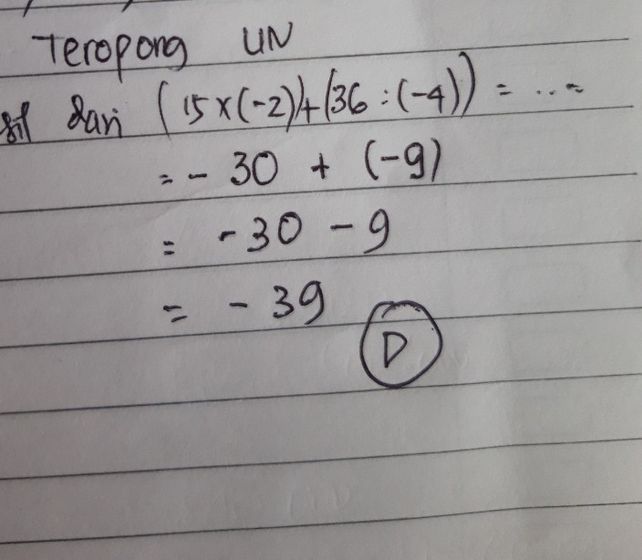 Teropong UN
sil dari (15×(-2))+(36:(-4)) = ....
= - 30 + (-9)
= - 30 - 9
= - 39
D